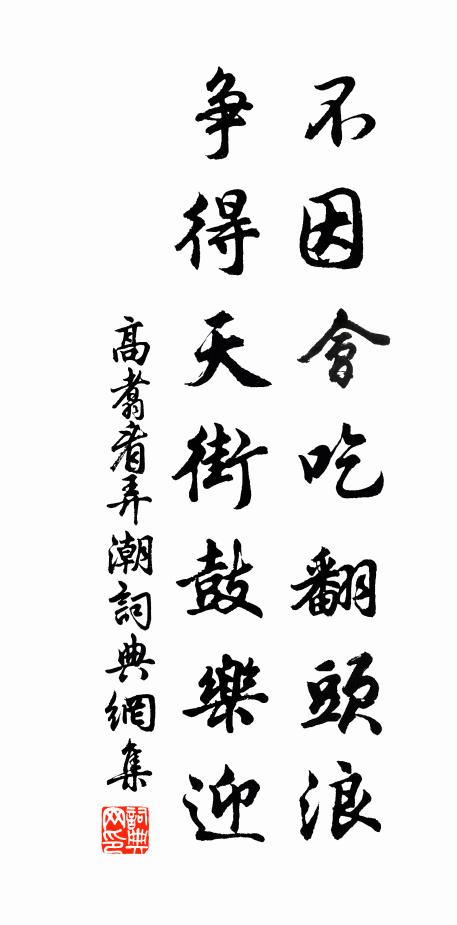 不因會吃翻頭浪
争得天街鼓樂迎
高翥看弄潮詞典網集
詞典網印